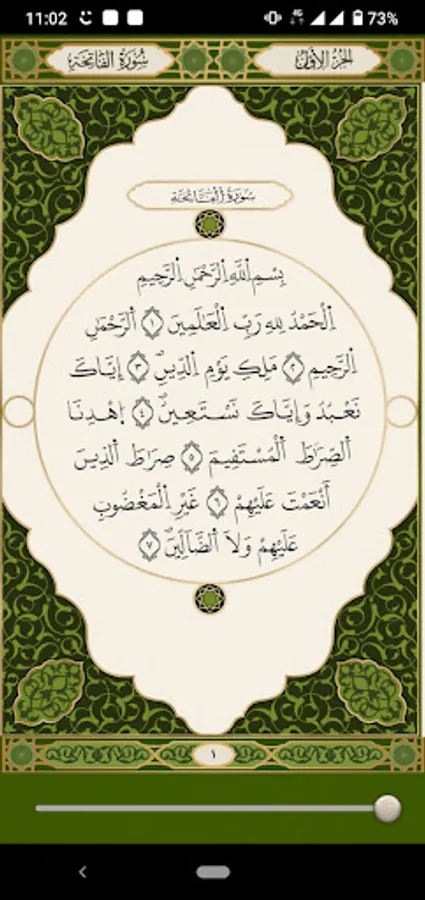 11:02 4G 73%
الجُزْءُ الأَوَّلُ
سُورَةُ الفَاتِحَةِ
سُورَةُ الْفَاتِحَةِ
بِسْمِ اِللَّهِ اِلرَّحْمَٰنِ اِلرَّحِيمِ
اِلْحَمْدُ لِلهِ رَبِّ اِلْعَٰلَمِينَ ١ اَلرَّحْمَٰنِ
اِلرَّحِيمِ ٢ مَلِكِ يَوْمِ اِلدِّينِ ٣ إِيَّاكَ
نَعْبُدُ وَإِيَّاكَ نَسْتَعِينُ ٤ اِهْدِنَا
اَلصِّرَٰطَ اَلْمُسْتَقِيمَ ٥ صِرَٰطَ اَلذِينَ
أَنْعَمْتَ عَلَيْهِمْ ٦ غَيْرِ اِلْمَغْضُوبِ
عَلَيْهِمْ وَلَا اَلضَّآلِّينَ ٧
١